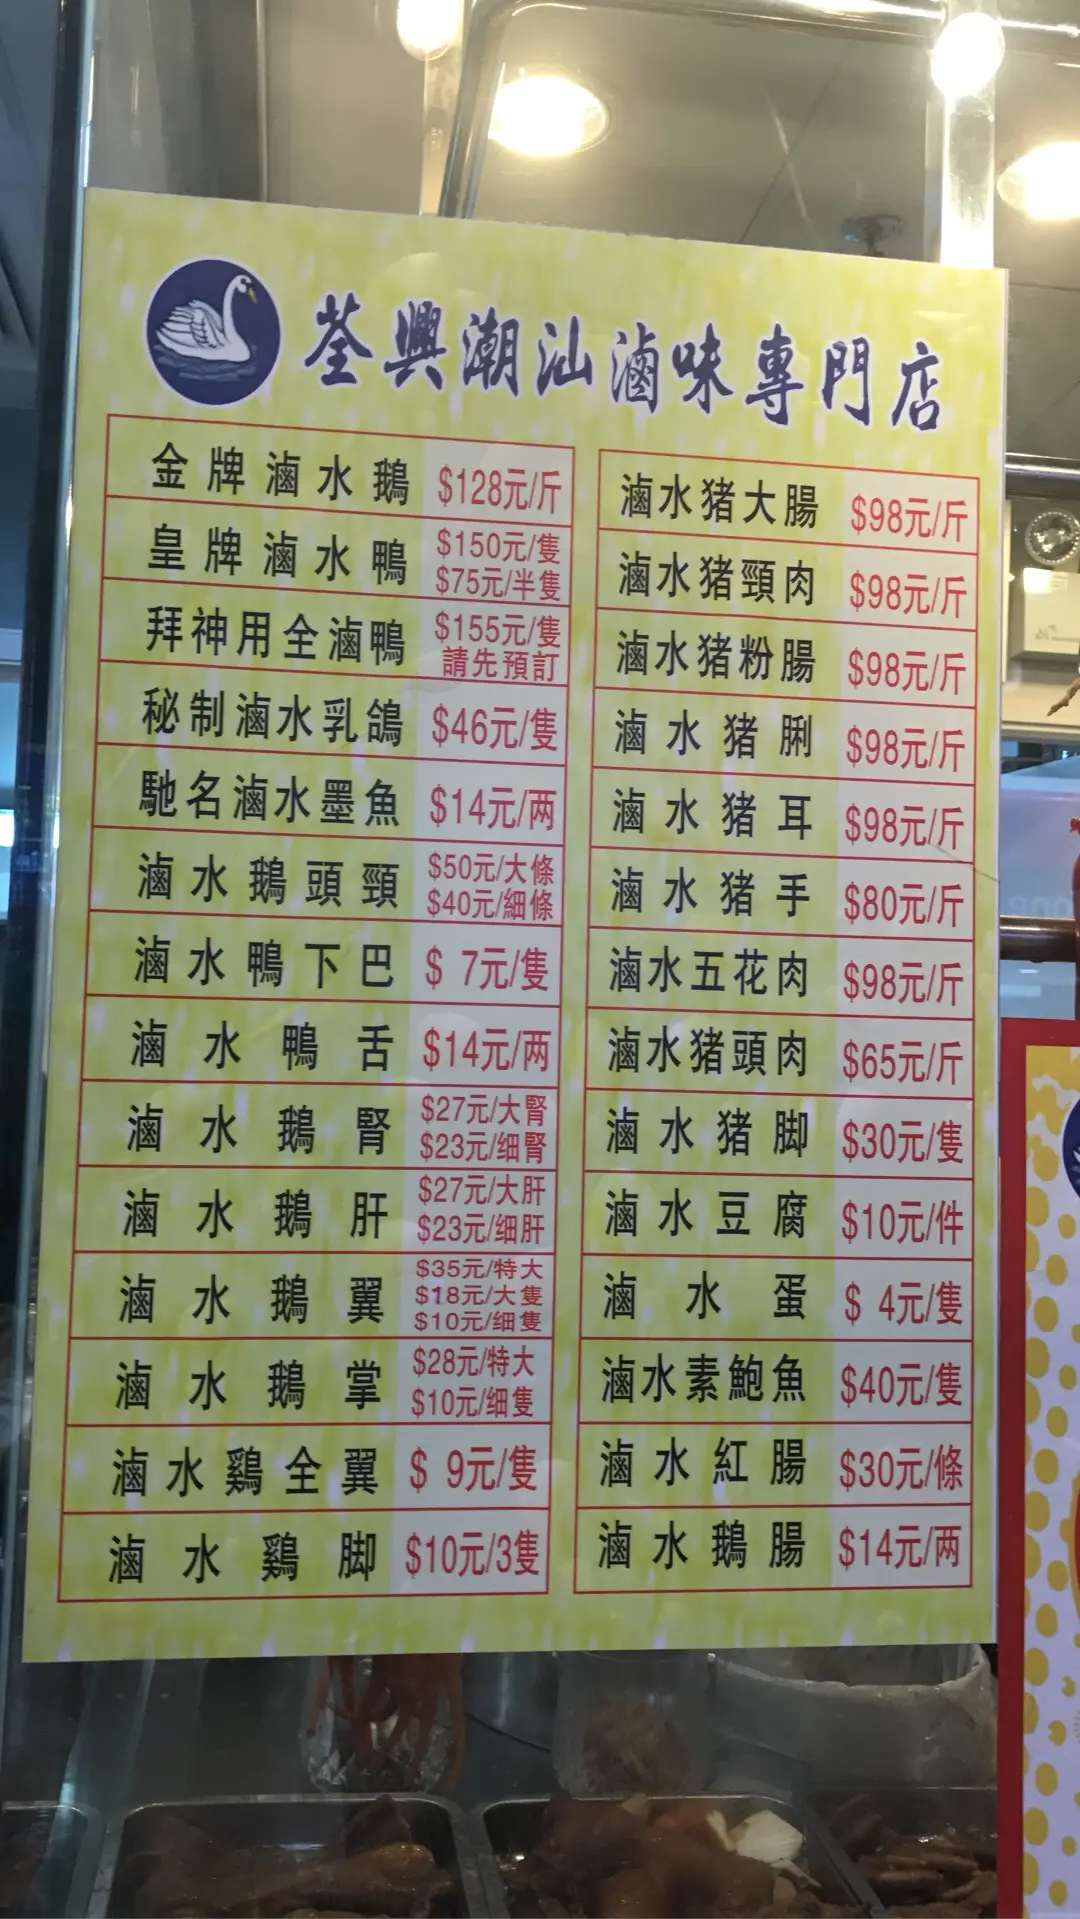 荃興潮汕滷味專門店
金牌滷水鵝 $128元/斤
皇牌滷水鴨 $150元/隻
$75元/半隻
拜神用全滷鴨 $155元/隻
請先預訂
秘制滷水乳鴿 $46元/隻
馳名滷水墨魚 $14元/两
滷水鵝頭頸 $50元/大條
$40元/細條
滷水鴨下巴 $ 7元/隻
滷水鴨舌 $14元/两
滷水鵝腎 $27元/大腎
$23元/细腎
滷水鵝肝 $27元/大肝
$23元/细肝
滷水鵝翼 $35元/特大
$18元/大隻
$10元/细隻
滷水鵝掌 $28元/特大
$10元/细隻
滷水鷄全翼 $ 9元/隻
滷水鷄脚 $10元/3隻
滷水猪大腸 $98元/斤
滷水猪頸肉 $98元/斤
滷水猪粉腸 $98元/斤
滷水猪脷 $98元/斤
滷水猪耳 $98元/斤
滷水猪手 $80元/斤
滷水五花肉 $98元/斤
滷水猪頭肉 $65元/斤
滷水猪脚 $30元/隻
滷水豆腐 $10元/件
滷水蛋 $ 4元/隻
滷水素鮑魚 $40元/隻
滷水紅腸 $30元/條
滷水鵝腸 $14元/两